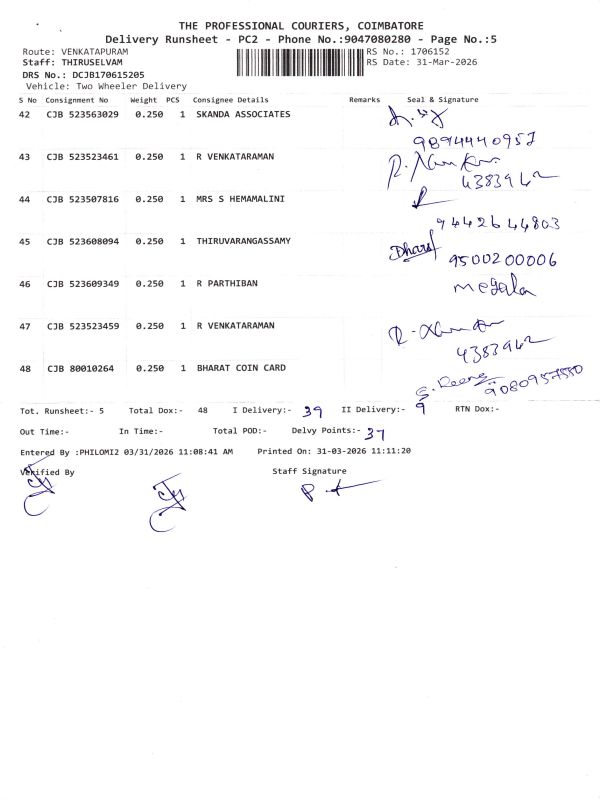 THE PROFESSIONAL COURIERS, COIMBATORE
Delivery Runsheet - PC2 - Phone No.:9047080280 - Page No.:5
Route: VENKATAPURAM RS No.: 1706152
Staff: THIRUSELVAM RS Date: 31-Mar-2026
DRS No.: DCJB170615205
Vehicle: Two Wheeler Delivery
S No Consignment No Weight PCS Consignee Details Remarks Seal & Signature
42 CJB 523563029 0.250 1 SKANDA ASSOCIATES
9894440952
43 CJB 523523461 0.250 1 R VENKATARAMAN
4383942
44 CJB 523507816 0.250 1 MRS S HEMAMALINI
9442644803
45 CJB 523608094 0.250 1 THIRUVARANGASSAMY
9500200006
46 CJB 523609349 0.250 1 R PARTHIBAN megala
47 CJB 523523459 0.250 1 R VENKATARAMAN
4383942
48 CJB 80010264 0.250 1 BHARAT COIN CARD
Tot. Runsheet:- 5 Total Dox:- 48 I Delivery:- 39 II Delivery:- 9 RTN Dox:-
Out Time:- In Time:- Total POD:- Delvy Points:- 37
Entered By :PHILOMI2 03/31/2026 11:08:41 AM Printed On: 31-03-2026 11:11:20
Verified By Staff Signature